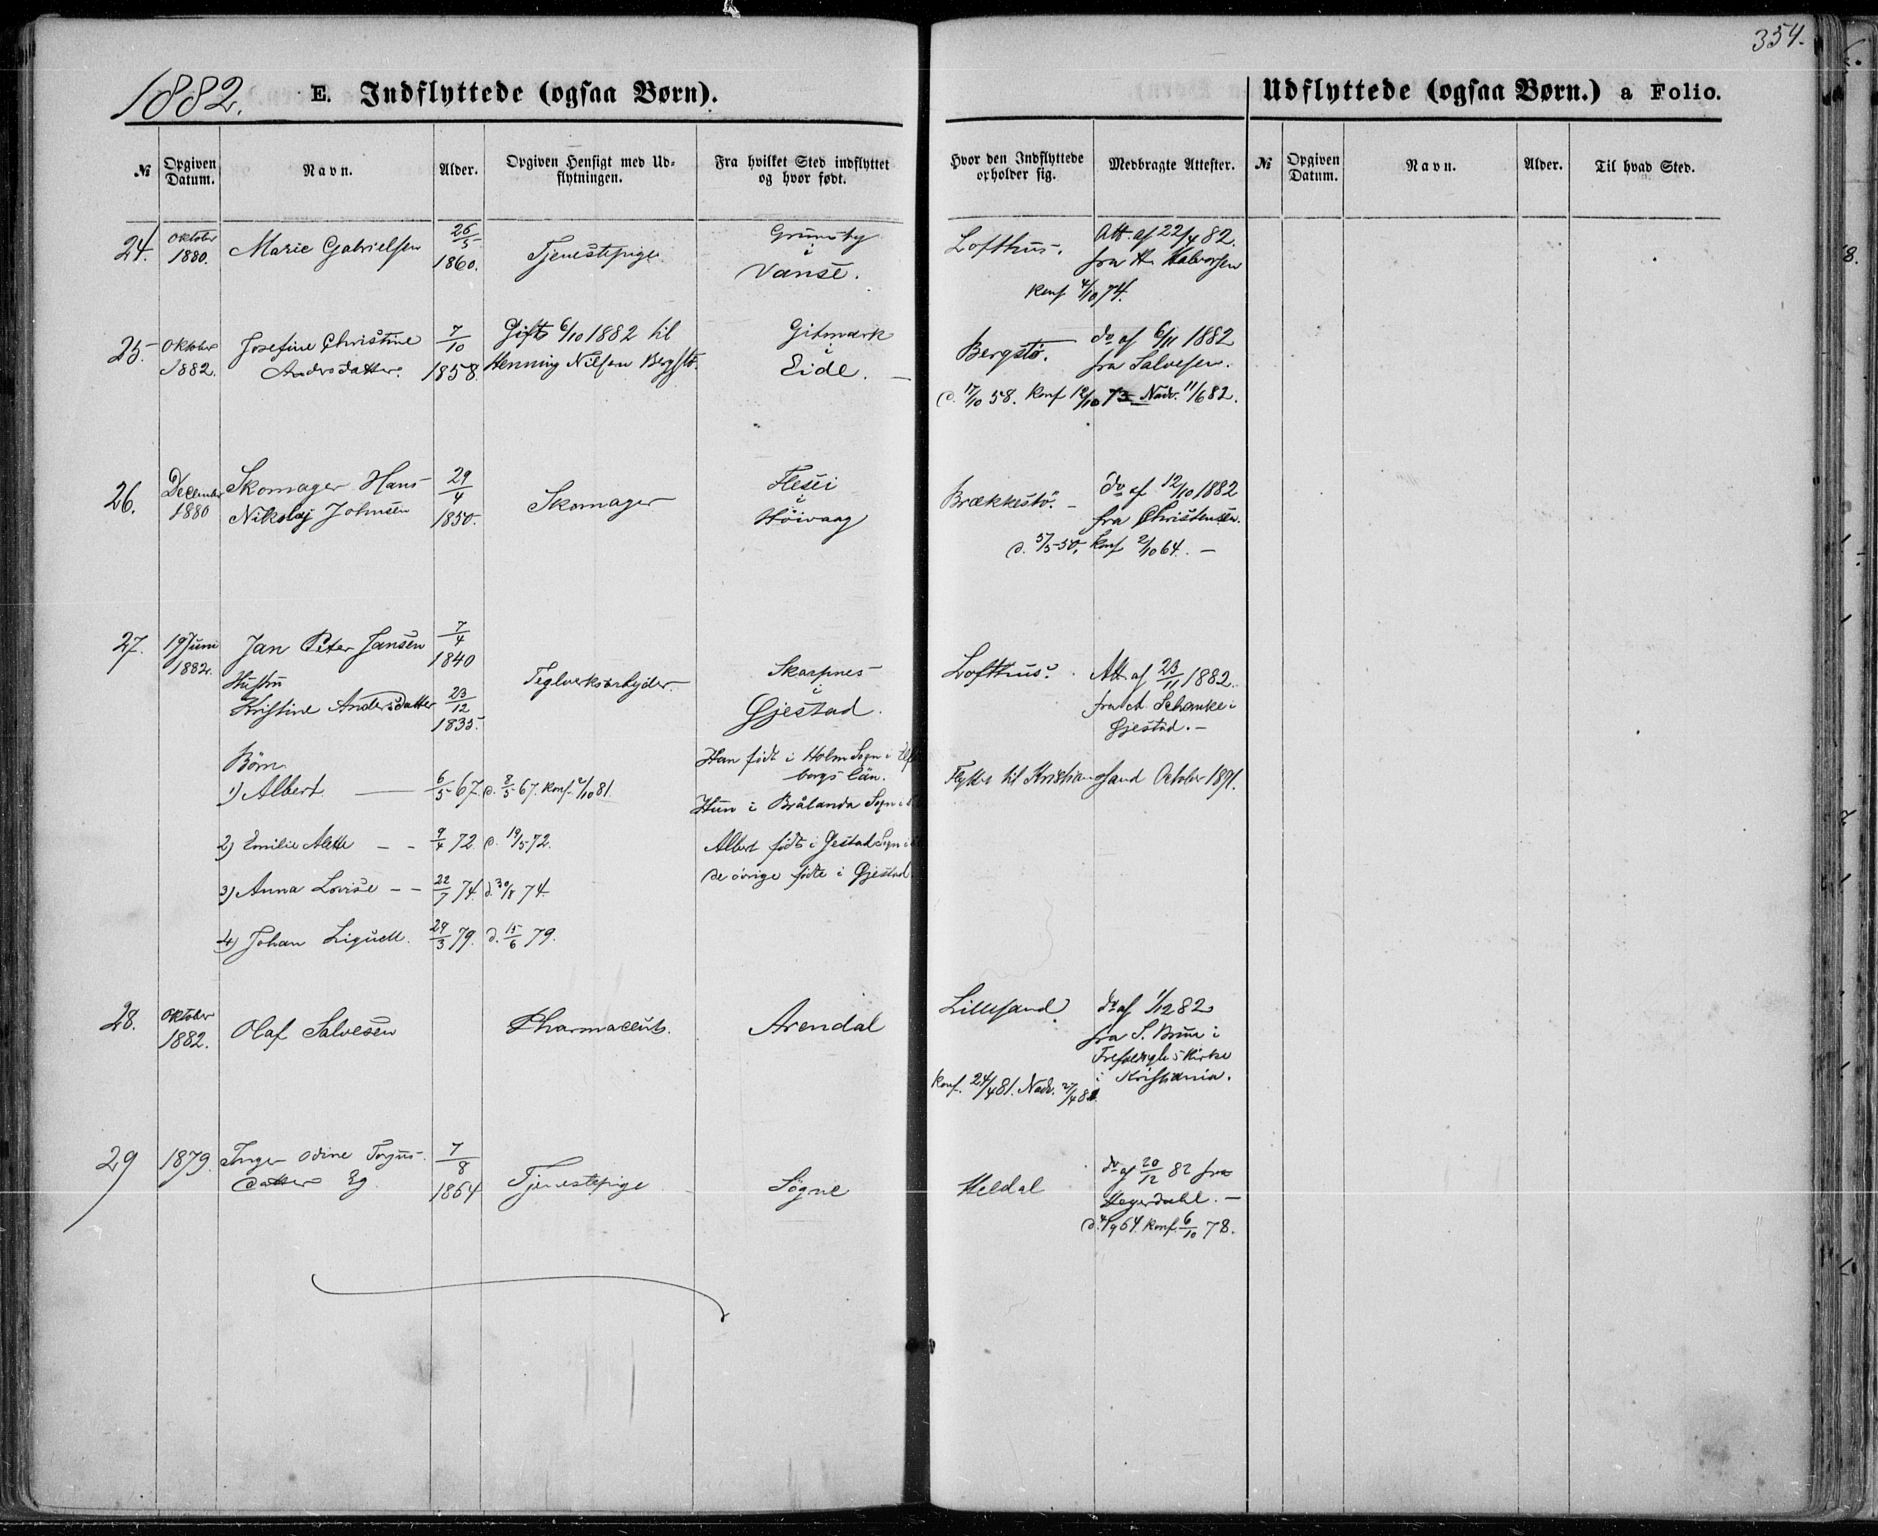 354.
1882.
E. Indflyttede (ogsaa Børn).
Udflyttede (ogsaa Børn.) a Folio.
№ Opgiven Datum. Navn. Alder. Opgiven Hensigt med Udflytningen. Fra hvilket Sted indflyttet og hvor født. Hvor den Indflyttede opholder sig. Medbragte Attester. № Opgiven Datum. Navn. Alder. Til hvad Sted.
24. Oktober 1880. Marie Gabrielsen 26/5 1860. Tjenestepige Grunsby i Vanse. Lofthus. Att. af 22/4 82. fra H. Halvorsen
Konf 4/10 74.
25. Oktober 1882. Josefine Christine Andersdatter. 7/10 1858. Gift 6/10 1882 til Henning Nilsen Bergstø. Gitmark i Eide. Bergstø. do af 6/11 1882 fra Salvesen.
d. 17/10 58. Konf 12/10 73 Nadv. 11/6 82.
26. December 1880 Skomager Hans Nikolaj Johnsen 29/4 1850. Skomager Flesei i Høivaag Brækkestø. do af 12/10 1882 fra Christensen.
d. 5/5 50, Konf 2/10 64.
27. 19 Juni 1882. Jan Peter Jansen 7/4 1840 Teglverksarbejder. Skarpnes i Gjestad. Lofthus. Att af 23/11 1882. fra A. Schanke i Gjestad.
Hustru
Kristine Andersdatter 23/12 1835.
Børn
Han født i Holm Sogn i
borgs Län.
1) Albert 6/5 67. d. 8/5 67. Konf. 2/10 81. Flyttet til Kristiansand October 1891.
Hun i Brålanda Sogn i
2) Emilie Alette 9/4 72. d. 19/5 72. Albert født i Gestad Sogn i
De øvrige fødte i Gjestad
3) Anna Lovise 22/7 74. d. 30/8 74.
4) Johan 29/3 79. d. 15/6 79.
28. Oktober 1882. Olaf Salvesen Pharmaceut. Arendal Lillesand do af 1/12 82 fra S. Brun i
Kirke
i Kristiania.
Konf. 24/4 81. Nadv. 27/4 82.
29 1879. Inger Odine Torjusdatter Eg 7/8 1864 Tjenestepige Søgne Heldal do af 20/12 82 fra Heyerdahl.
d. 4/9 64. Konf. 6/10 78.